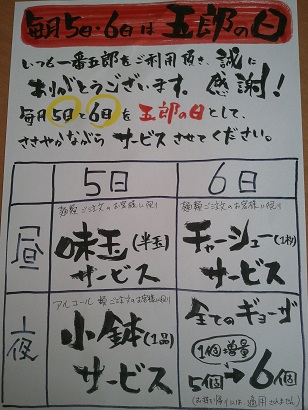 毎月5日・6日は五郎の日
いつも一番五郎をご利用頂き、誠に
ありがとうございます。感謝!
毎月5日と6日を五郎の日として、
ささやかながらサービスさせてください。
5日
6日
昼
麺類ご注文のお客様に限り
味玉(半玉)
サービス
麺類ご注文のお客様に限り
チャーシュー(1枚)
サービス
夜
アルコール類ご注文のお客様に限り
小鉢(1品)
サービス
全てのギョーザ
1個増量
5個→6個
(お持ち帰りには適用されません)